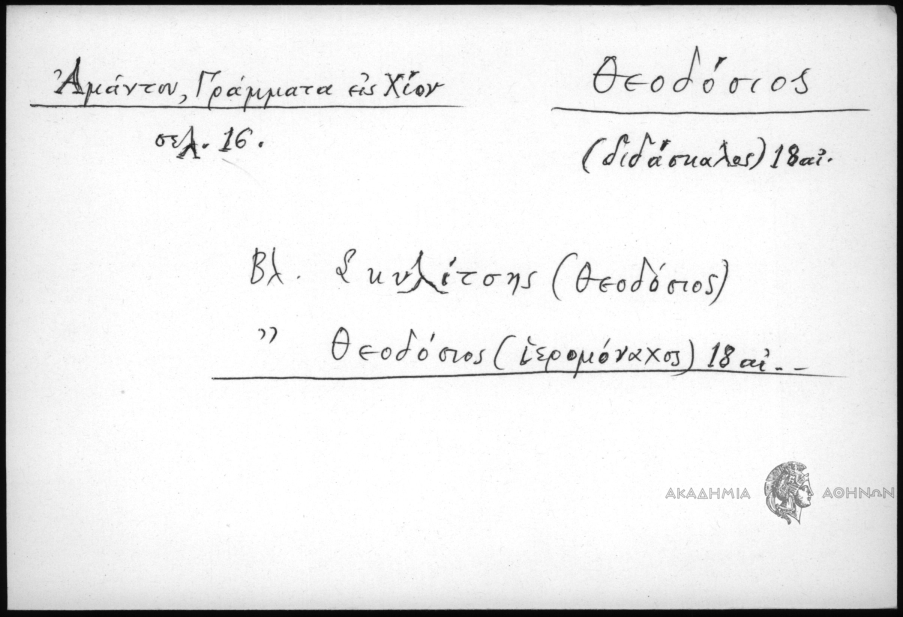 Ἀμάντου, Γράμματα εἰς Χίον
σελ. 16.
Θεοδόσιος
(διδάσκαλος) 18 αἰ.
Βλ. Σκυλίτσης (Θεοδόσιος)
” Θεοδόσιος (ἱερομόναχος) 18 αἰ. –
ΑΚΑΔΗΜΙΑ ΑΘΗΝΩΝ